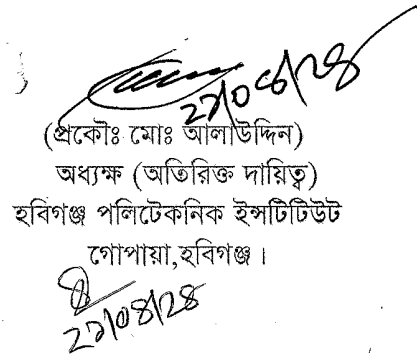 (প্রকৌঃ মোঃ আলাউদ্দিন)
অধ্যক্ষ (অতিরিক্ত দায়িত্ব)
হবিগঞ্জ পলিটেকনিক ইন্সটিটিউট
গোপায়া,হবিগঞ্জ।